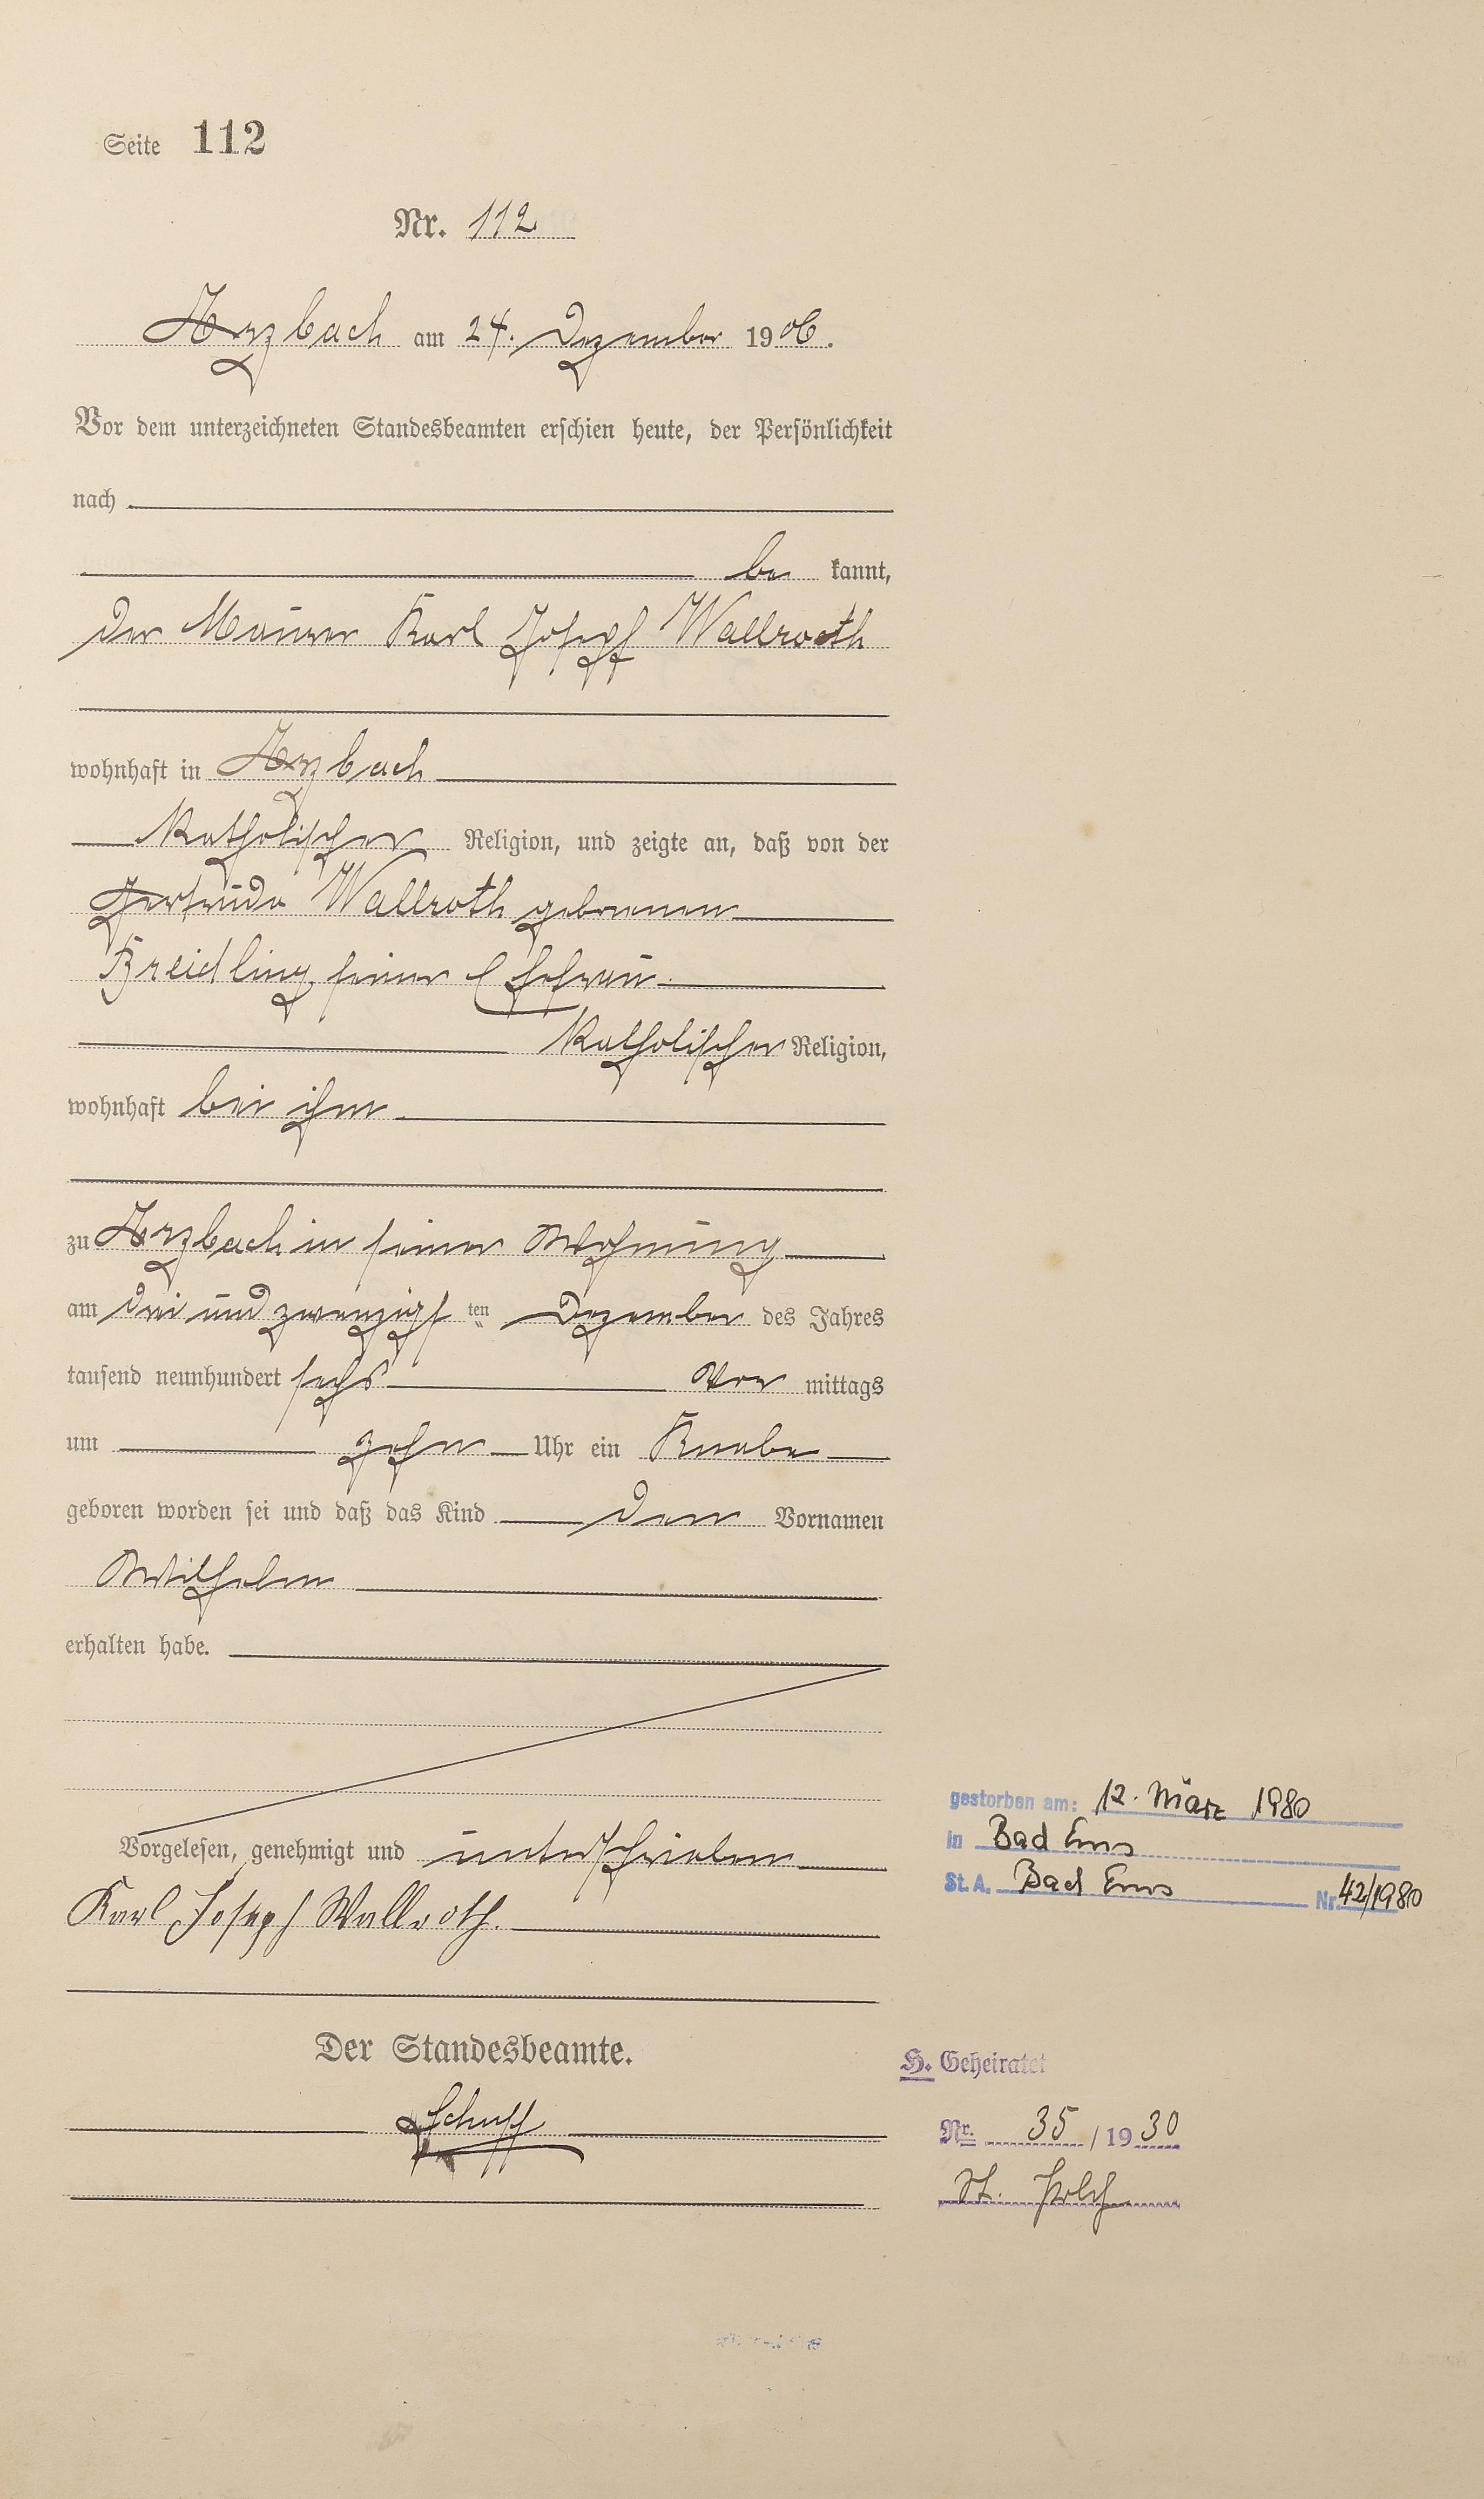 Seite 112
Nr. 112
Arzbach am 24. Dezember 1906.
Vor dem unterzeichneten Standesbeamten erschien heute, der Persönlichkeit
nach
be kannt,
der Maurer Karl Joseph Wallroth
wohnhaft in Arzbach
katholischer Religion, und zeigte an, daß von der
Gertrude Wallroth geborenen
Breidling, seiner Ehefrau
katholischer Religion,
wohnhaft bei ihm
zu Arzbach in seiner Wohnung
am drei und zwanzigs ten Dezember des Jahres
tausend neunhundert sechs Vor mittags
um zehn Uhr ein Knabe
geboren worden sei und daß das Kind den Vornamen
Wilhelm
erhalten habe.
Vorgelesen, genehmigt und unterschrieben
Karl Joseph Wallroth.
Der Standesbeamte.
Schupp
gestorben am: 12. März 1980
in Bad Ems
St. A. Bad Ems Nr. 42/1980
H. Geheiratet
Nr. 35 / 1930
St.